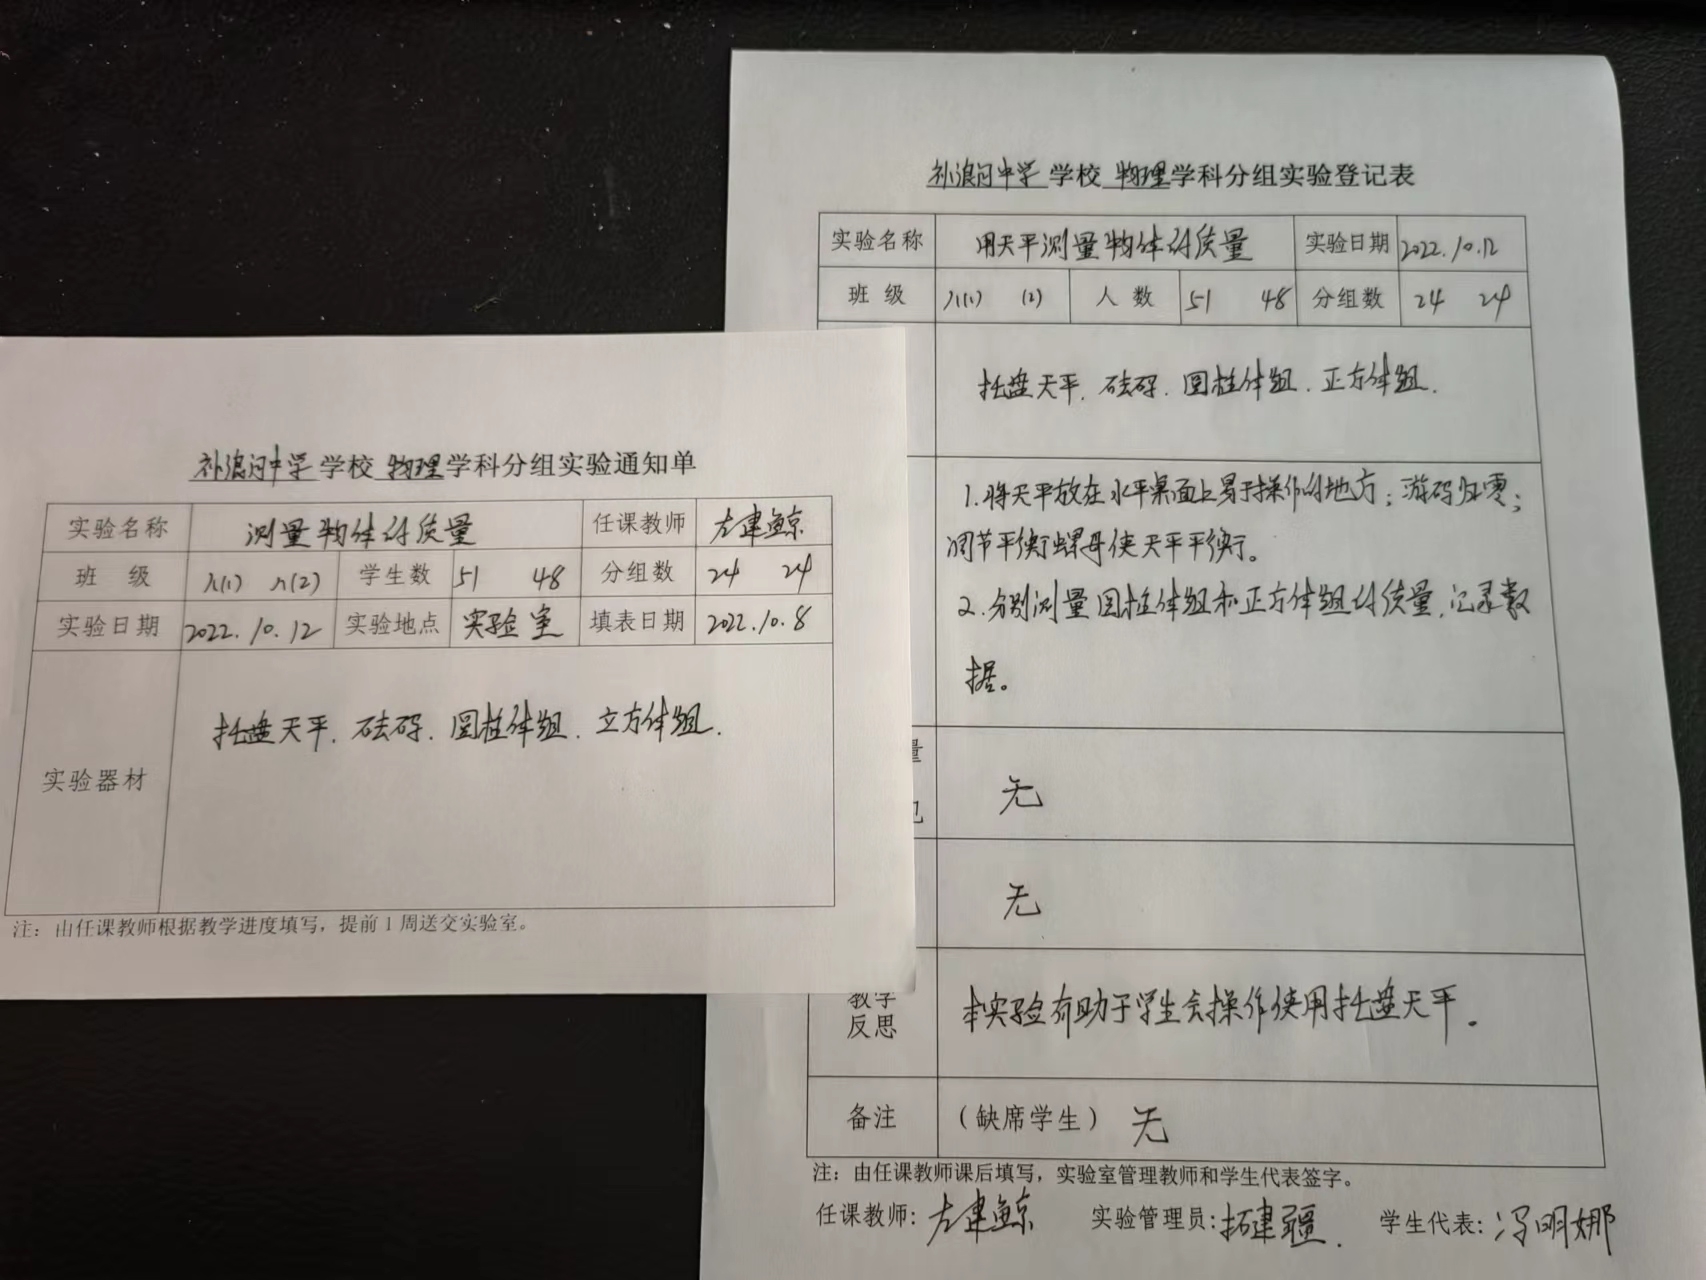 补浪河中学学校 物理学科分组实验通知单
实验名称 测量物体的质量 任课教师 左建鲸
班 级 八(1) 八(2) 学生数 51 48 分组数 24 24
实验日期 2022.10.12 实验地点 实验室 填表日期 2022.10.8
实验器材 托盘天平、砝码、圆柱体组、立方体组.
注：由任课教师根据教学进度填写，提前1周送交实验室。
补浪河中学学校 物理学科分组实验登记表
实验名称 用天平测量物体的质量 实验日期 2022.10.12
班 级 八(1) (2) 人 数 51 48 分组数 24 24
托盘天平、砝码、圆柱体组、正方体组.
1.将天平放在水平桌面上易于操作的地方；游码归零；
调节平衡螺母使天平平衡。
2.分别测量圆柱体组和正方体组的质量,记录数
据。
量
无
无
教学
反思
本实验有助于学生会操作使用托盘天平.
备注 (缺席学生) 无
注：由任课教师课后填写，实验室管理教师和学生代表签字。
任课教师: 左建鲸 实验管理员: 拓建疆. 学生代表: 冯明娜